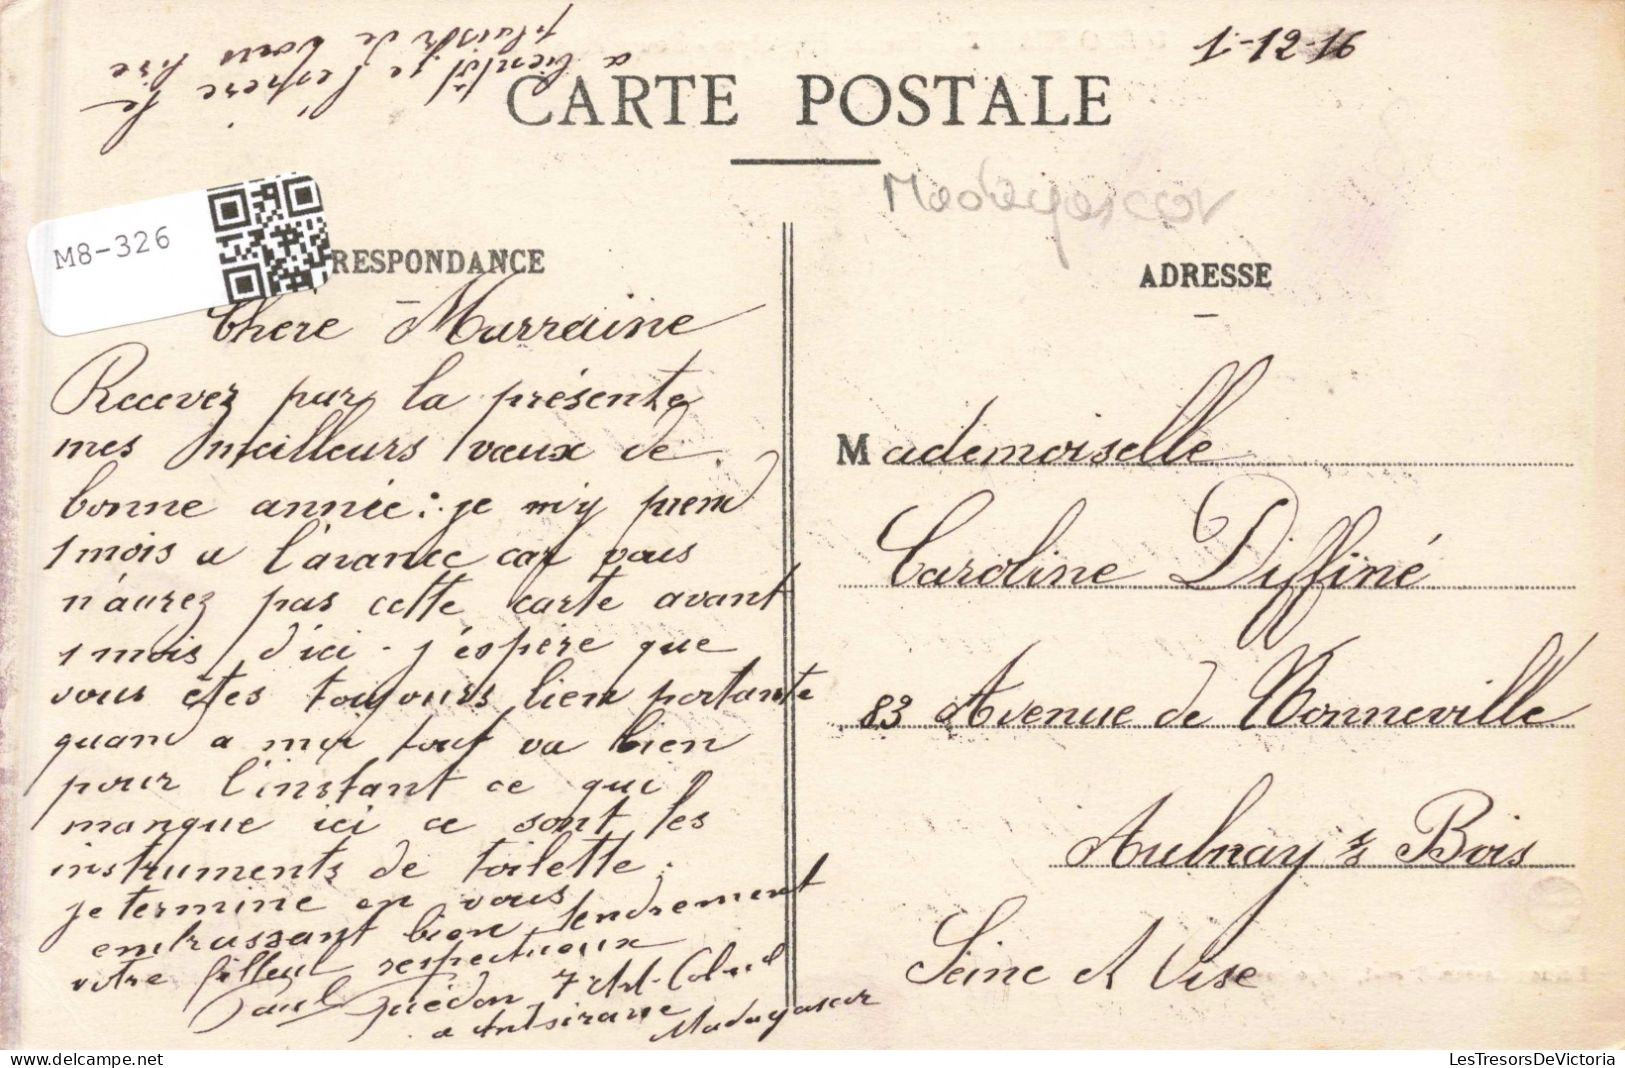 1-12-16
a bientôt je l'espère le
plaisir de vous lire
CARTE POSTALE
Madagascar
M8-326
RESPONDANCE
ADRESSE
Chere Marraine
Recevez par la présente
mes meilleurs vœux de
bonne année : je m'y prend
1 mois a l'avance car vous
n'aurez pas cette carte avant
1 mois d'ici - j'espère que
vous êtes toujours bien portante
quand a moi tout va bien
pour l'instant ce qui
manque ici ce sont les
instruments de toilette.
je termine en vous
embrassant bien tendrement
votre filleul respectueux
Paul Guédon 7e Art. Colonial
a Antsirane Madagascar
Mademoiselle
Caroline Diffiné
83 Avenue de Nonneville
Aulnay s/s Bois
Seine et Oise
LesTresorsDeVictoria.com